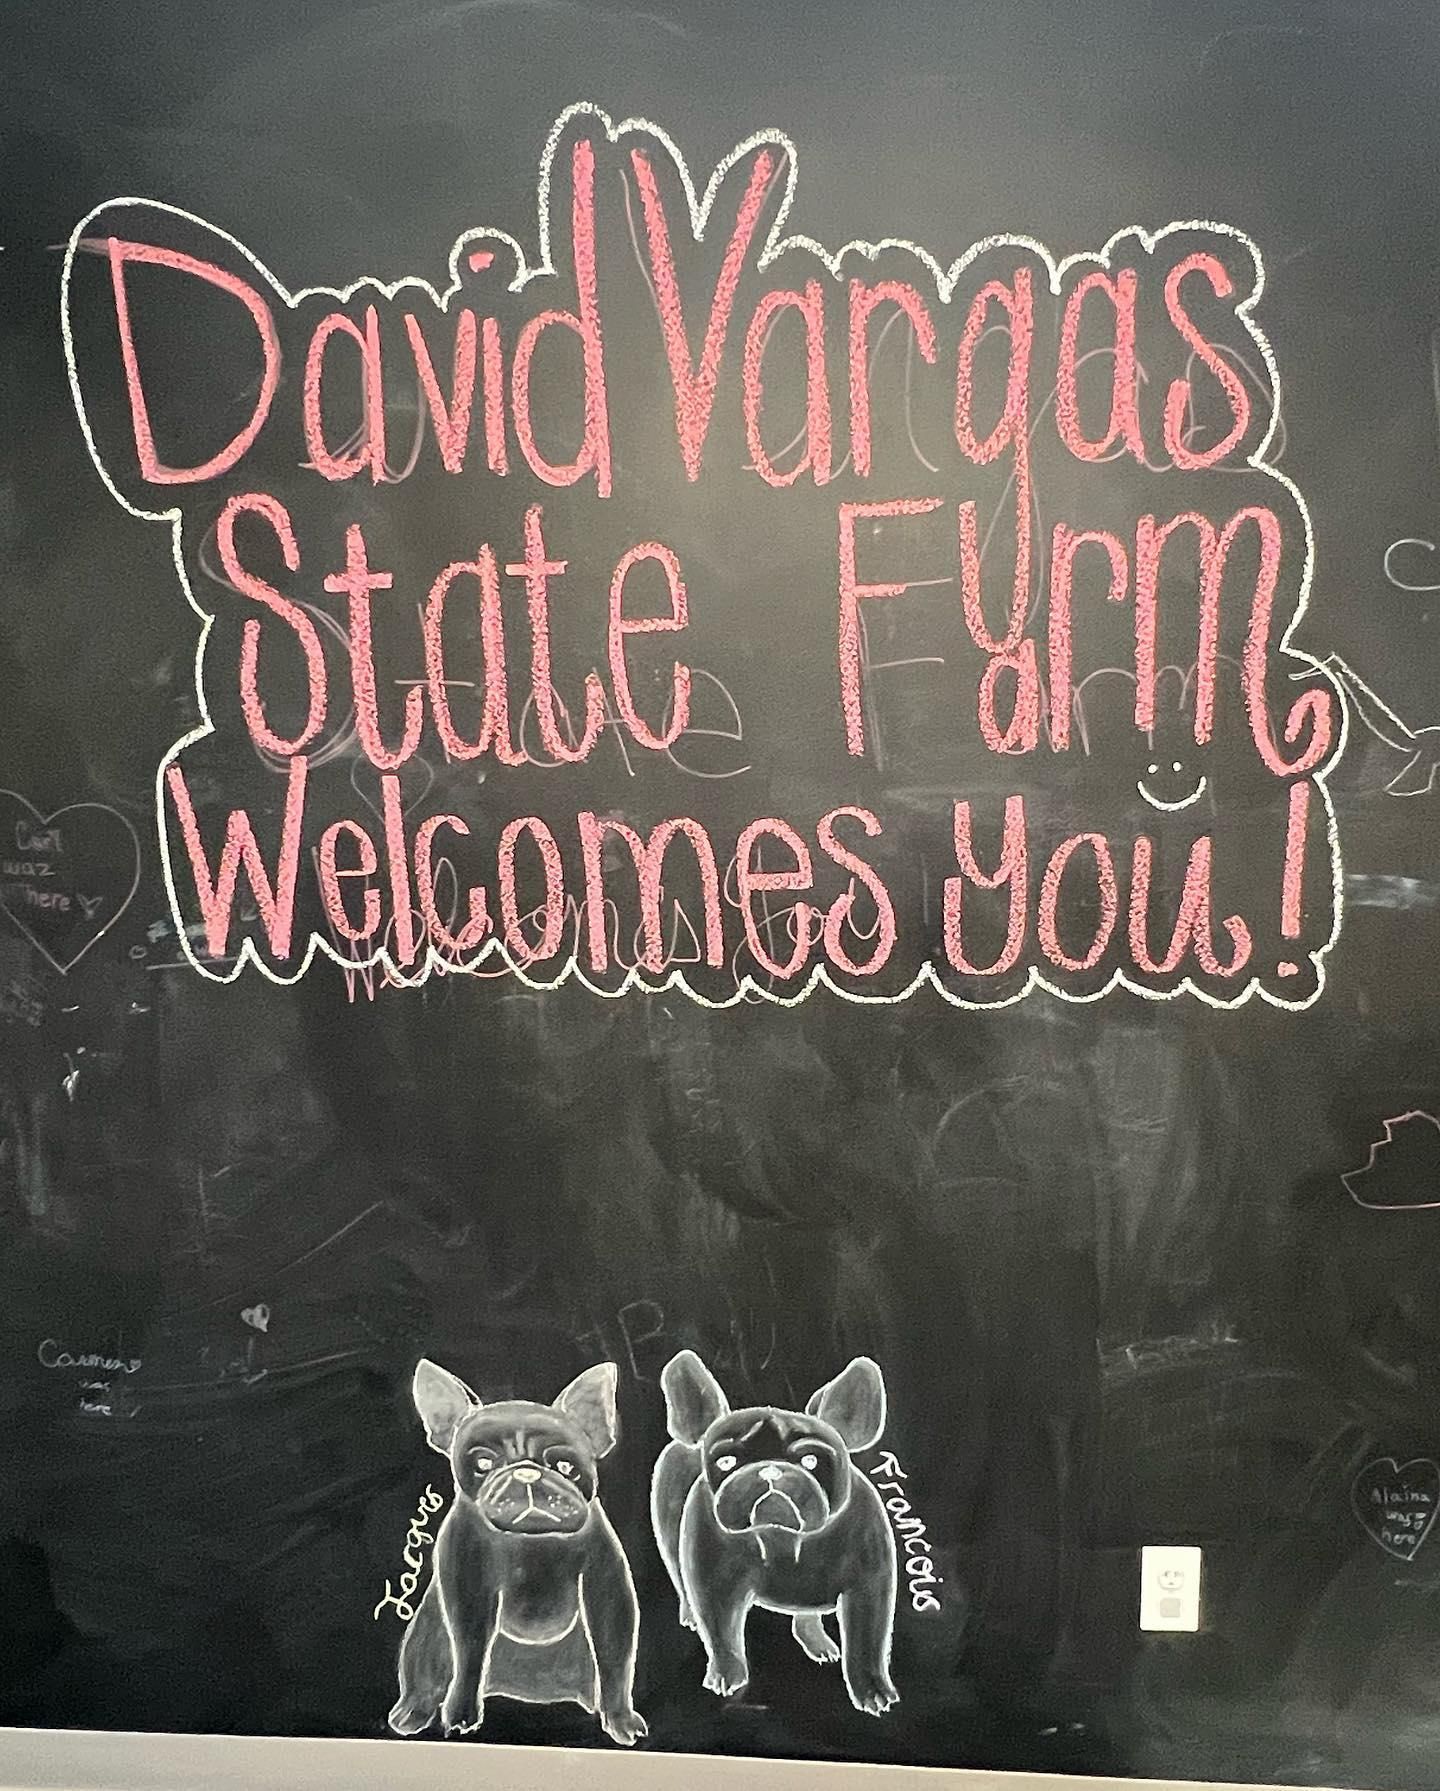 David Vargas
State Farm
Welcomes you!
Carl
waz
here
Carmen
was
here
Jarques
Francois
Alaina
was
here